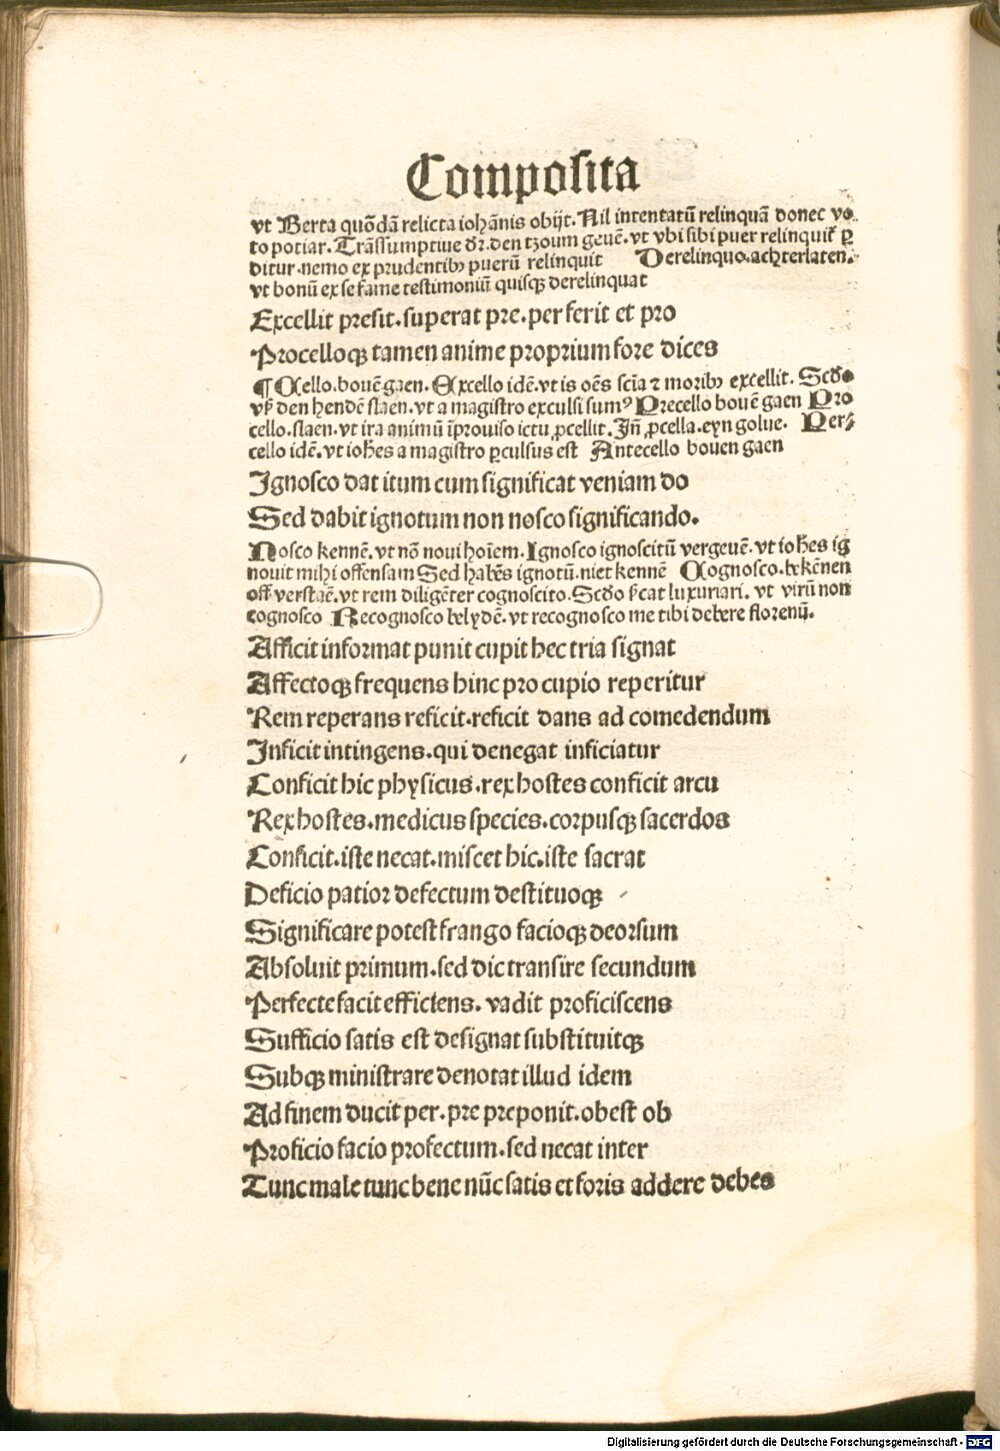 Composita
vt Berta quõdã relicta iohãnis obijt. Nil intentatũ relinquã donec vo⸗
to potiar. Trãssumptiue dr̃. den tzoum geuẽ. vt vbi sibi puer relinquit̃ ꝑ
ditur. nemo ex prudentibꝫ puerũ relinquit Derelinquo. achterlaten.
vt bonũ ex se fame testimoniũ quisqꝫ derelinquat
Excellit presit. superat pre. per ferit et pro
Procelloqꝫ tamen anime proprium fore dices
¶ Cello. bouẽ gaen. Excello idẽ. vt is oẽs scĩa ⁊ moribꝫ excellit. Scd̃o
vp̃ den hendẽ slaen. vt a magistro exculsi sumꝰ Precello bouẽ gaen Pro
cello. slaen. vt ira animũ ĩprouiso ictu ꝓcellit. Jñ ꝓcella. eyn golue. Per⸗
cello idẽ. vt ioh̃es a magistro ꝑculsus est Antecello bouen gaen
Jgnosco dat itum cum significat veniam do
Sed dabit ignotum non nosco significando.
Nosco kennẽ. vt nõ noui hoĩem. Jgnosco ignoscitũ vergeuẽ. vt ioh̃es ig
nouit mihi offensam Sed habẽs ignotũ. niet kennẽ Cognosco. bekẽnen
off verstaẽ. vt rem diligẽter cognoscito. Scd̃o s̃cat luxuriari. vt virũ non
cognosco Recognosco belydẽ. vt recognosco me tibi debere florenũ.
Afficit informat punit cupit hec tria signat
Affectoqꝫ frequens hinc pro cupio reperitur
Rem reperans reficit. reficit dans ad comedendum
Jnficit intingens. qui denegat inficiatur
Conficit hic physicus. rex hostes conficit arcu
Rex hostes. medicus species. corpusqꝫ sacerdos
Conficit. iste necat. miscet hic. iste sacrat
Deficio patior defectum destituoqꝫ
Significare potest frango facioqꝫ deorsum
Absoluit primum. sed dic transire secundum
Perfecte facit efficiens. vadit proficiscens
Sufficio satis est designat substituitqꝫ
Subqꝫ ministrare denotat illud idem
Ad finem ducit per. pre preponit. obest ob
Proficio facio profectum. sed necat inter
Tunc male tunc bene nũc satis et foris addere debes
Digitalisierung gefördert durch die Deutsche Forschungsgemeinschaft - DFG